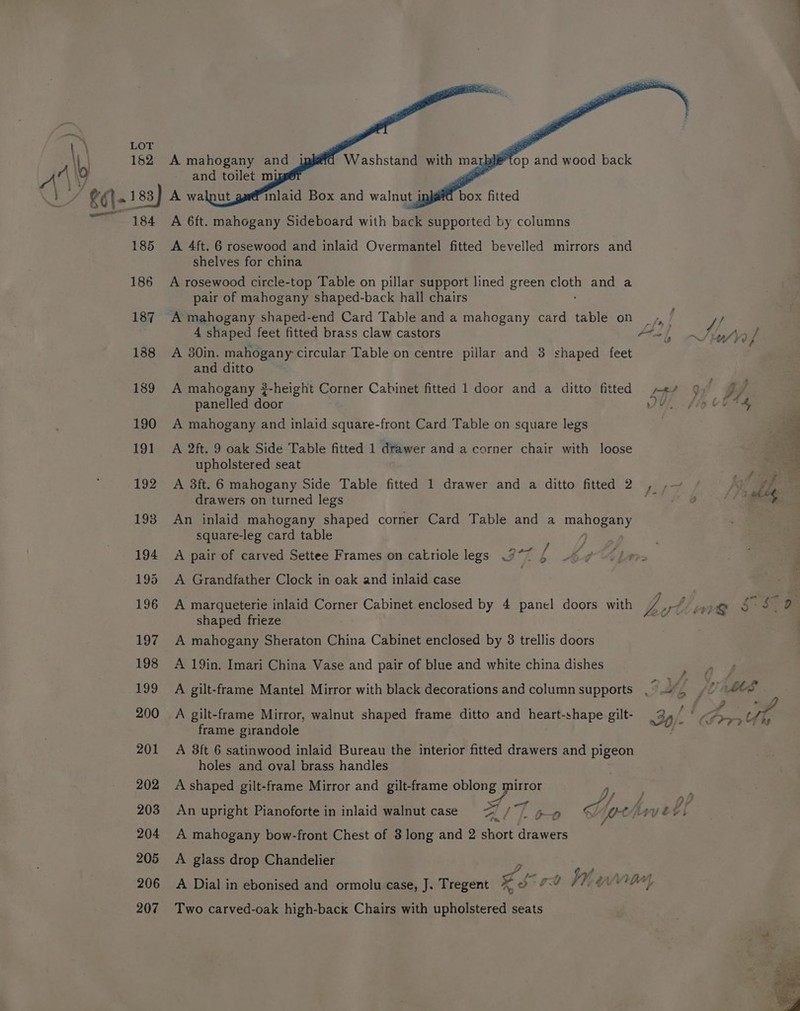 LOT
182 A mahogany and inlaid Washstand with marble top and wood back
and toilet mirror
183 A walnut and inlaid Box and walnut inlaid box fitted
184 A 6ft. mahogany Sideboard with back supported by columns
185 A 4ft. 6 rosewood and inlaid Overmantel fitted bevelled mirrors and
shelves for china
186 A rosewood circle-top Table on pillar support lined green cloth and a
pair of mahogany shaped-back hall chairs
187 A mahogany shaped-end Card Table and a mahogany card table on
4 shaped feet fitted brass claw castors
188 A 30in. mahogany circular Table on centre pillar and 3 shaped feet
and ditto
189 A mahogany ¾-height Corner Cabinet fitted 1 door and a ditto fitted
panelled door
190 A mahogany and inlaid square-front Card Table on square legs
191 A 2ft. 9 oak Side Table fitted 1 drawer and a corner chair with loose
upholstered seat
192 A 3ft. 6 mahogany Side Table fitted 1 drawer and a ditto fitted 2
drawers on turned legs
193 An inlaid mahogany shaped corner Card Table and a mahogany
square-leg card table
194 A pair of carved Settee Frames on cabriole legs
195 A Grandfather Clock in oak and inlaid case
196 A marqueterie inlaid Corner Cabinet enclosed by 4 panel doors with
shaped frieze
197 A mahogany Sheraton China Cabinet enclosed by 3 trellis doors
198 A 19in. Imari China Vase and pair of blue and white china dishes
199 A gilt-frame Mantel Mirror with black decorations and column supports
200 A gilt-frame Mirror, walnut shaped frame ditto and heart-shape gilt-
frame girandole
201 A 3ft 6 satinwood inlaid Bureau the interior fitted drawers and pigeon
holes and oval brass handles
202 A shaped gilt-frame Mirror and gilt-frame oblong mirror
203 An upright Pianoforte in inlaid walnut case
204 A mahogany bow-front Chest of 3 long and 2 short drawers
205 A glass drop Chandelier
206 A Dial in ebonised and ormolu case, J. Tregent
207 Two carved-oak high-back Chairs with upholstered seats